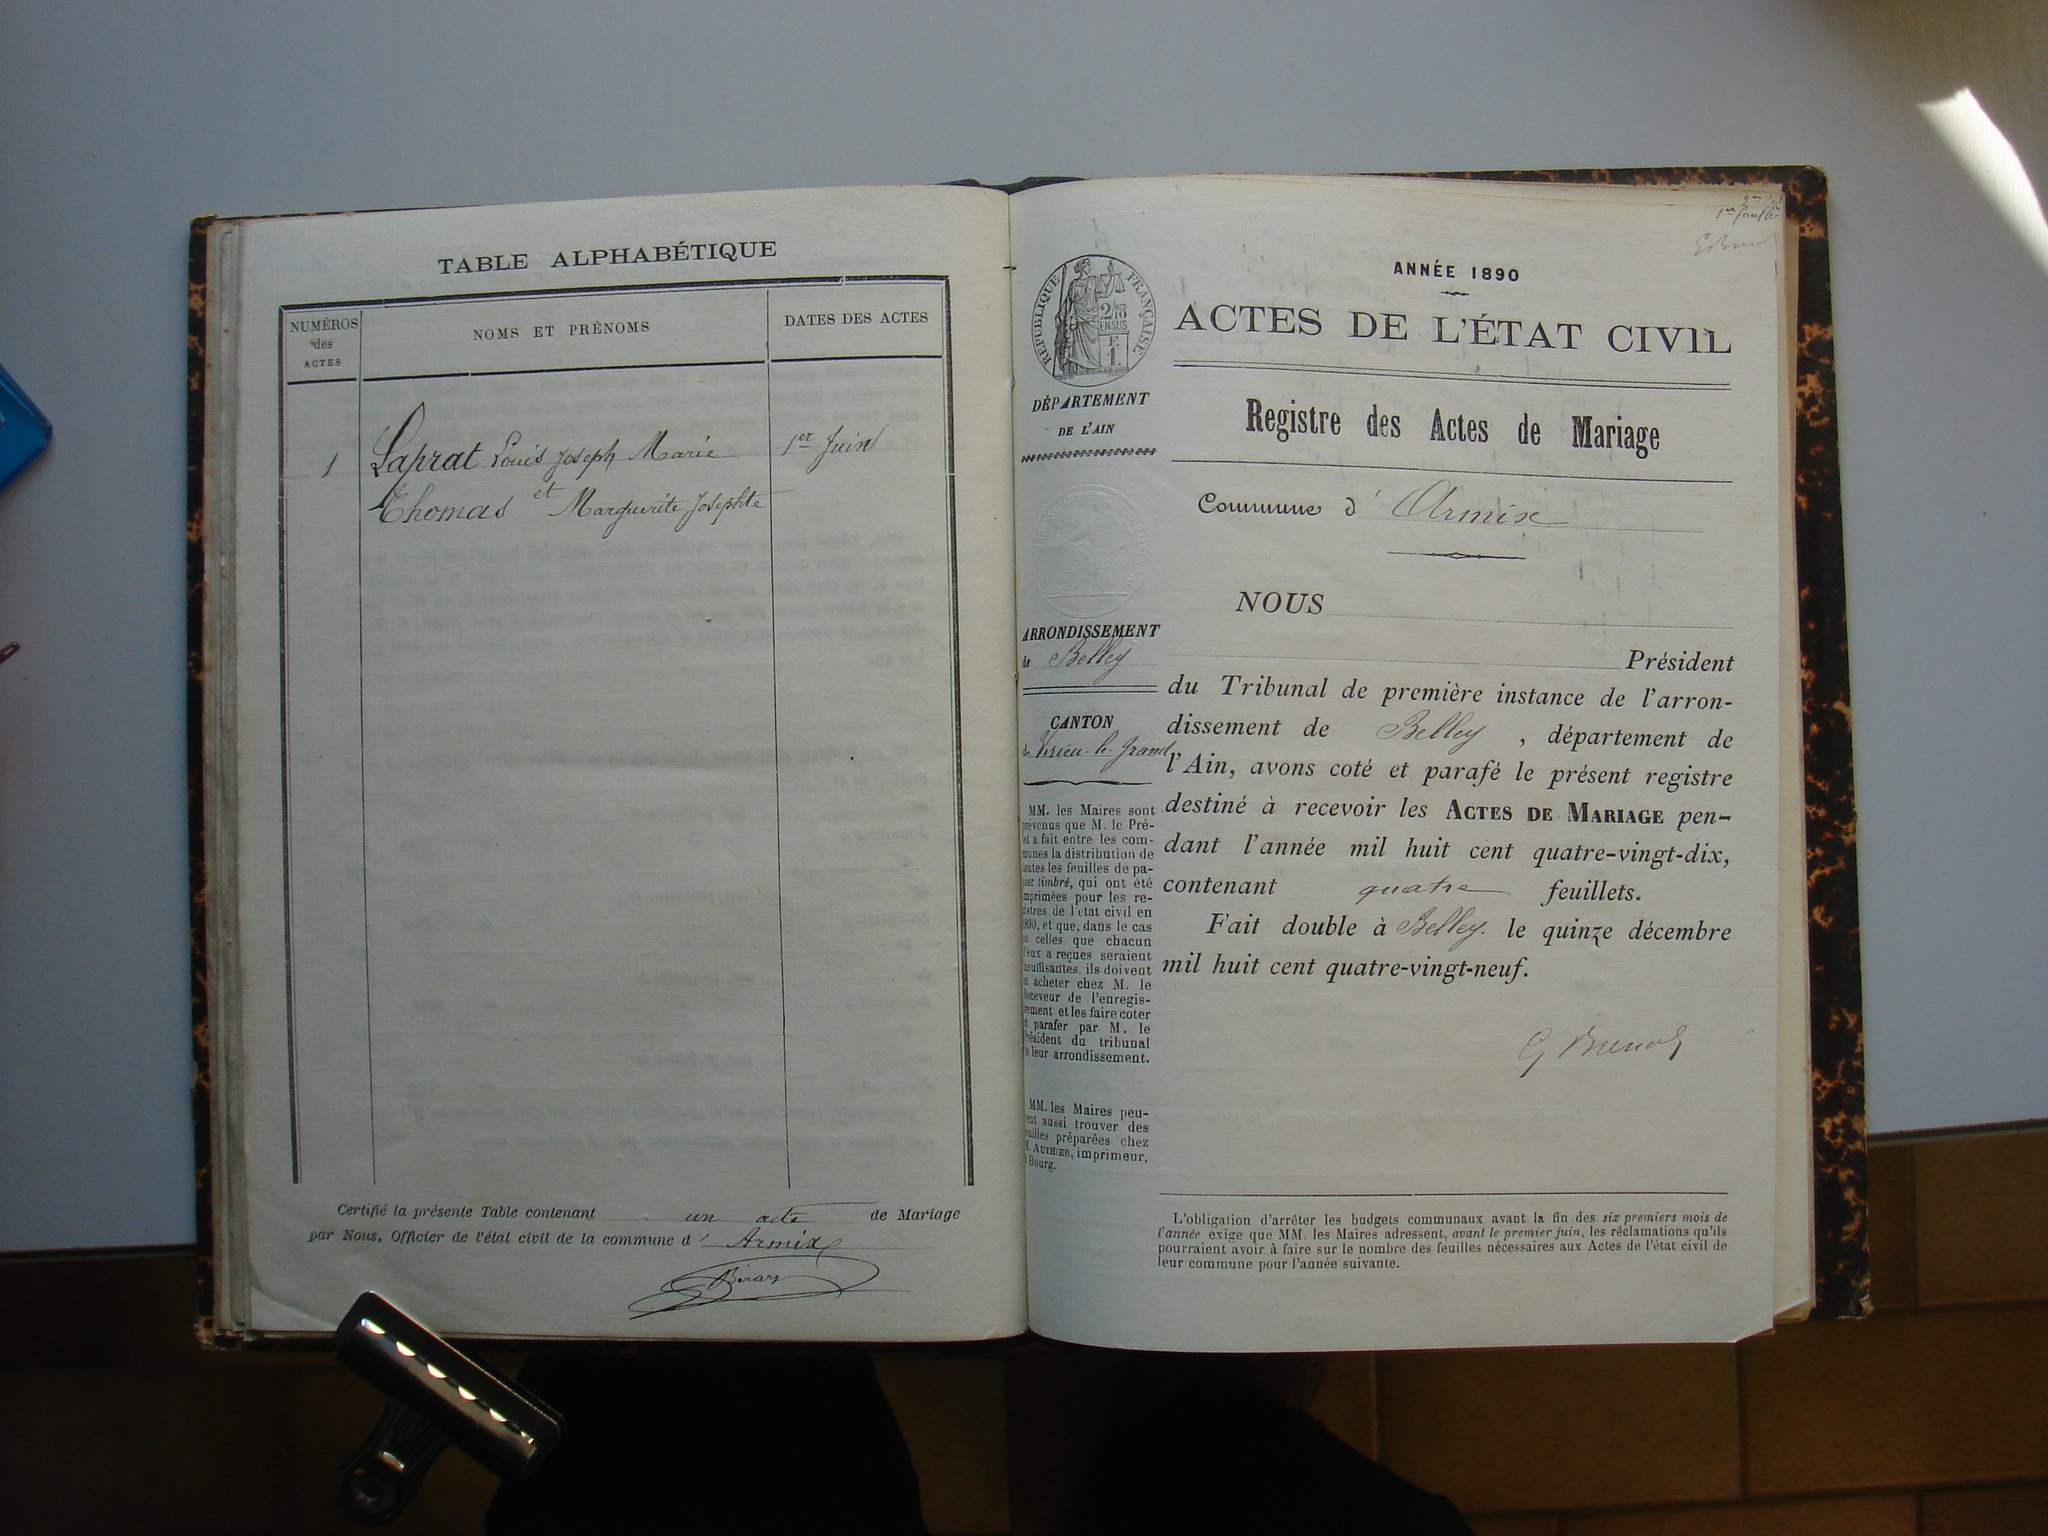 TABLE ALPHABÉTIQUE
NUMÉROS
des
ACTES
NOMS ET PRÉNOMS
DATES DES ACTES
1 Laprat Louis Joseph Marie 1er Juin
et
Thomas Marguerite Josephte
Certifié la présente Table contenant un acte de Mariage
par Nous, Officier de l'état civil de la commune d' Armix
1er feuillet
RÉPUBLIQUE FRANÇAISE
2/10
EN SUS
F.
1.
DÉPARTEMENT
DE L'AIN
ARRONDISSEMENT
de Belley
CANTON
de Virieu-le-Grand
MM. les Maires sont
prévenus que M. le Pré-
et a fait entre les com-
munes la distribution de
toutes les feuilles de pa-
pier timbré, qui ont été
imprimées pour les re-
istres de l'état civil en
1890, et que, dans le cas
où celles que chacun
d'eux a reçues seraient
insuffisantes, ils doivent
en acheter chez M. le
Receveur de l'enregis-
rement et les faire coter
et parafer par M. le
Président du tribunal
de leur arrondissement.
MM. les Maires peu-
ent aussi trouver des
euilles préparées chez
M. AUTHIER, imprimeur,
à Bourg.
ANNÉE 1890
ACTES DE L'ÉTAT CIVIL
Registre des Actes de Mariage
Commune d' Armix
NOUS
Président
du Tribunal de première instance de l'arron-
dissement de Belley, département de
l'Ain, avons coté et parafé le présent registre
destiné à recevoir les ACTES DE MARIAGE pen-
dant l'année mil huit cent quatre-vingt-dix,
contenant quatre feuillets.
Fait double à Belley. le quinze décembre
mil huit cent quatre-vingt-neuf.
L'obligation d'arrêter les budgets communaux avant la fin des six premiers mois de
l'année exige que MM. les Maires adressent, avant le premier juin, les réclamations qu'ils
pourraient avoir à faire sur le nombre des feuilles nécessaires aux Actes de l'état civil de
leur commune pour l'année suivante.